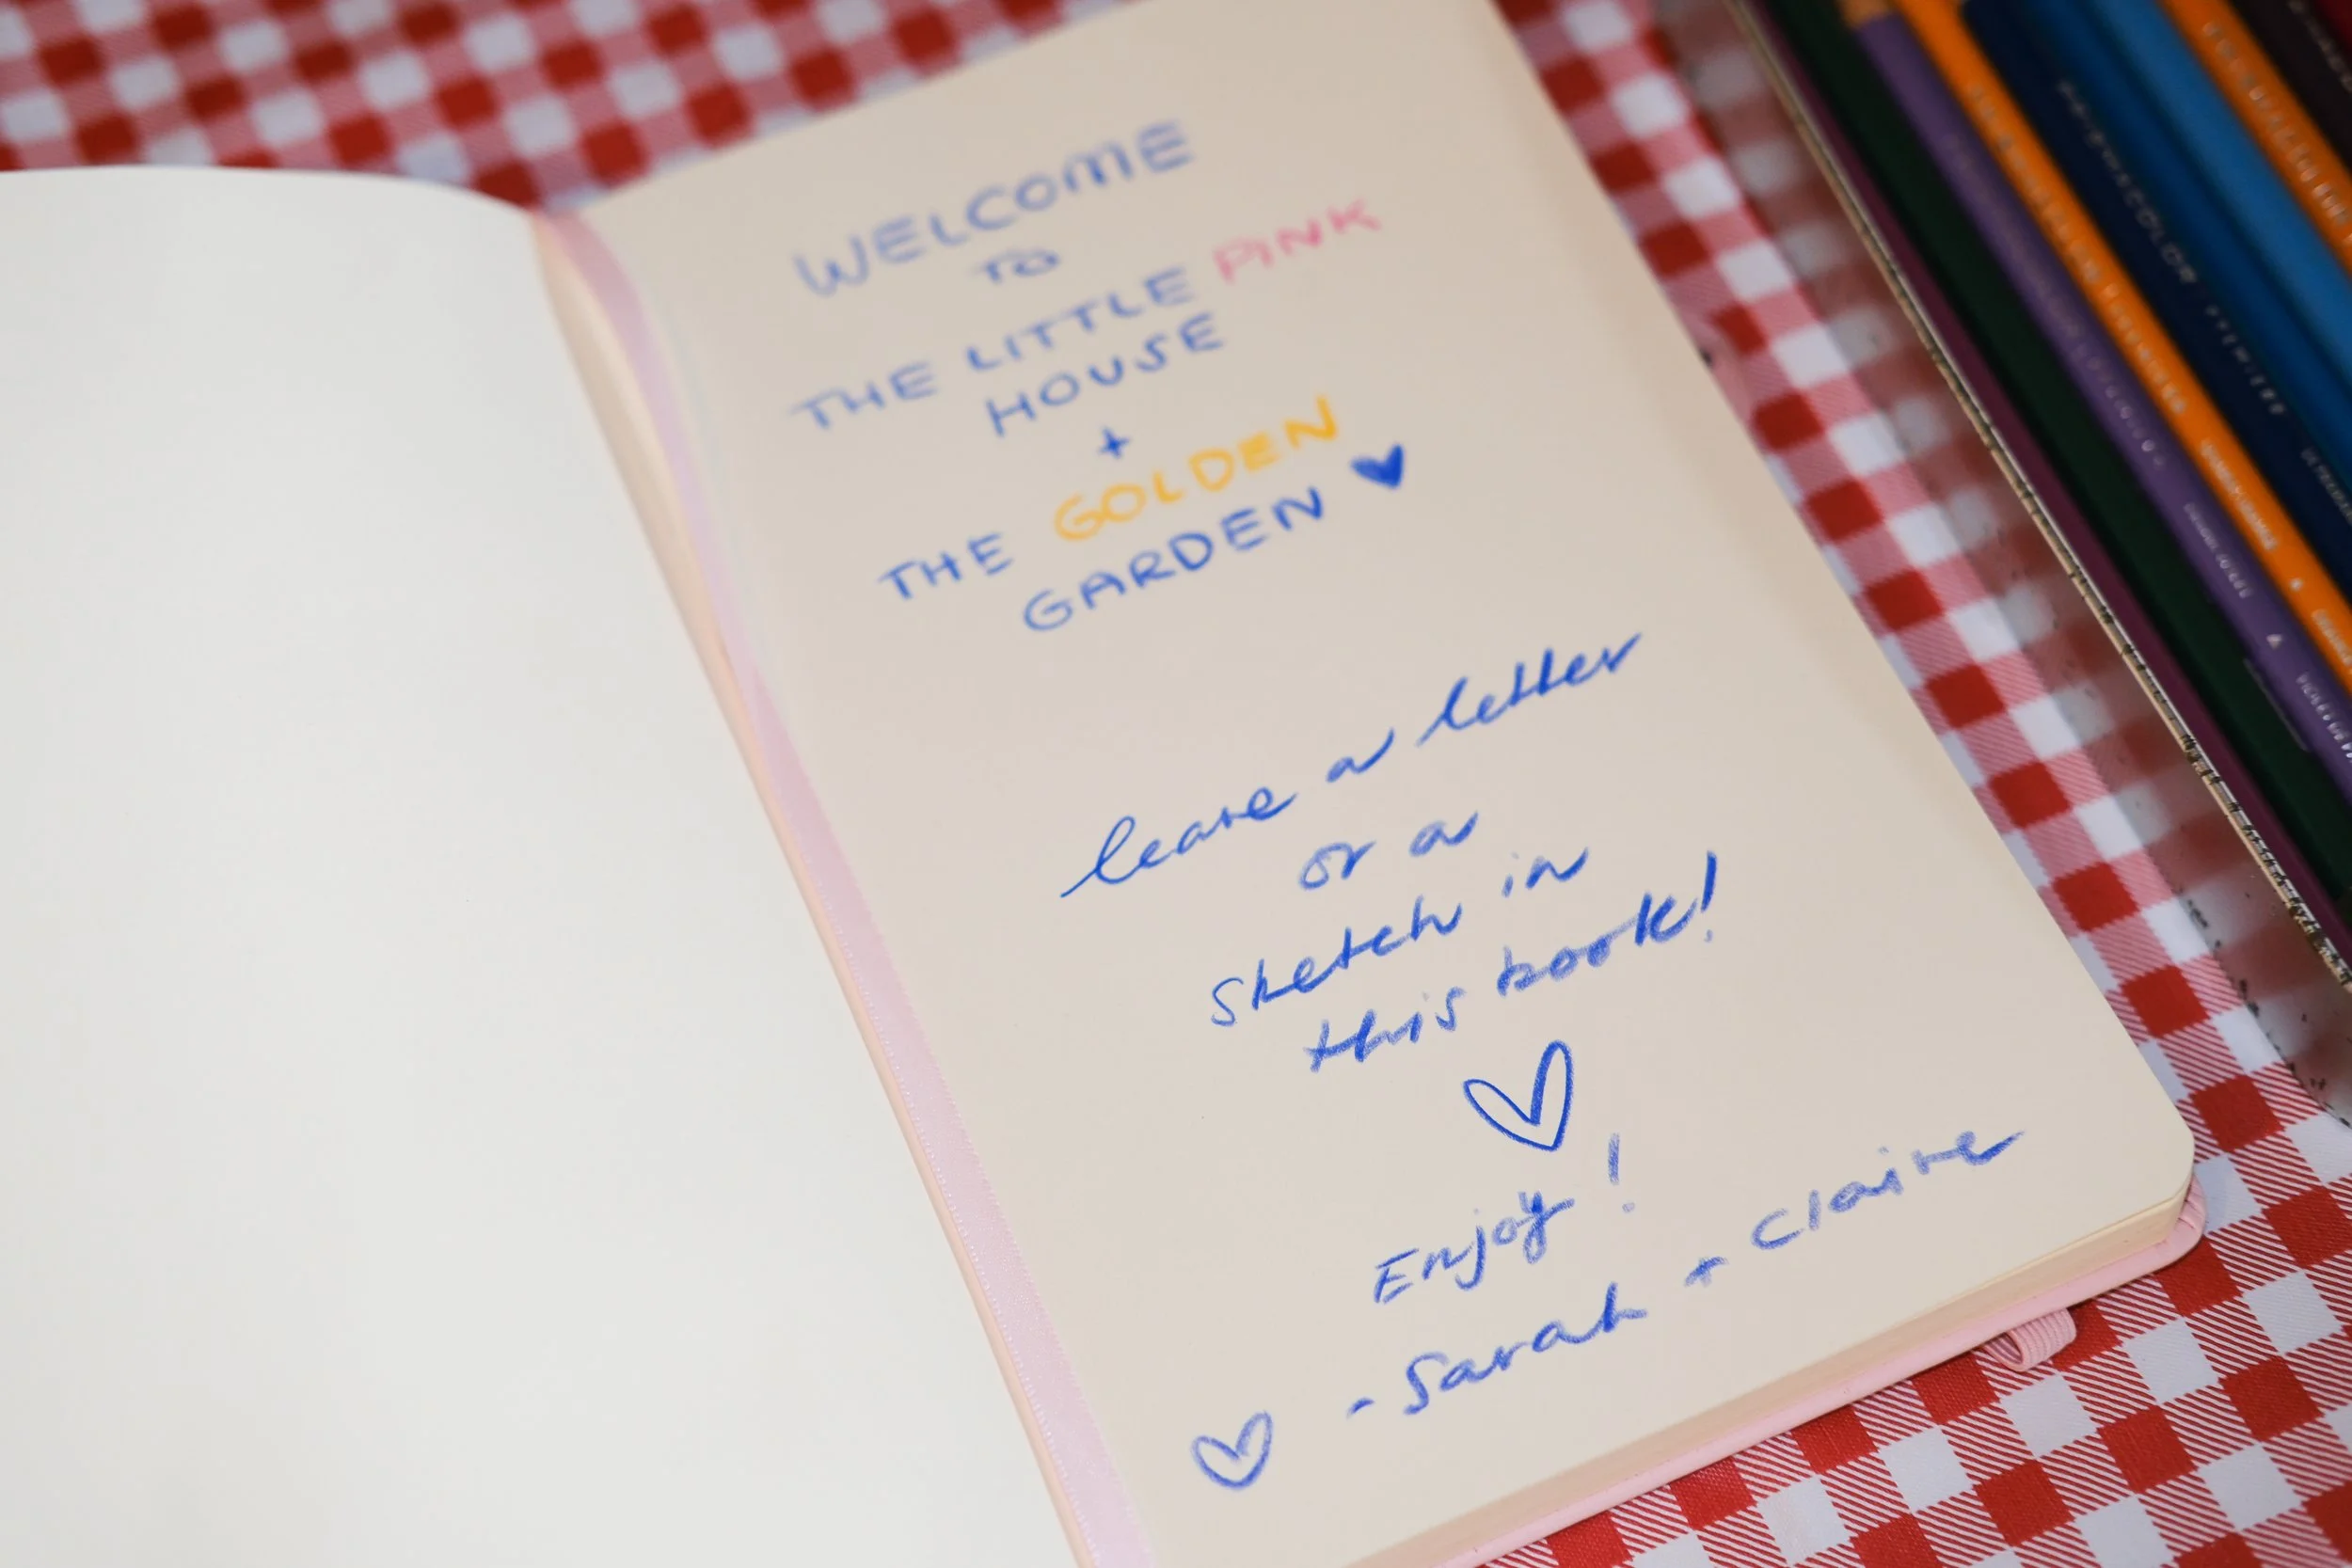 WELCOME
TO
THE LITTLE PINK
HOUSE
+
THE GOLDEN
GARDEN ♥
leave a letter
or a
sketch in
this book!
♡
Enjoy!
♡ - Sarah + Claire